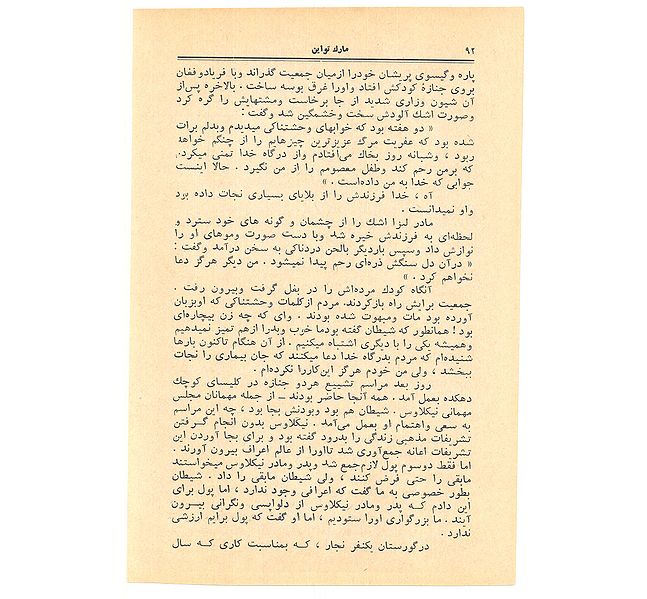 ۹۲
مارك تواین
پاره وگیسوی پریشان خودرا ازمیان جمعیت گذراند وبا فریادوفغان
بروی جنازهٔ کودکش افتاد واورا غرق بوسه ساخت . بالاخره پس‌از
آن شیون وزاری شدید از جا برخاست ومشتهایش را گره کرد
وصورت اشك آلودش سخت وخشمگین شد وگفت :
« دو هفته بود که خوابهای وحشتناکی میدیدم وبدلم برات
شده بود که عفریت مرگ عزیزترین چیزهایم را از چنگم خواهد
ربود ، وشبانه روز بخاك می‌افتادم واز درگاه خدا تمنی میکردم
که برمن رحم کند وطفل معصومم را از من نگیرد . حالا اینست
جوابی که خدا به من داده‌است . »
آه ، خدا فرزندش را از بلایای بسیاری نجات داده بود
واو نمیدانست .
مادر لیزا اشك را از چشمان و گونه های خود سترد و
لحظه‌ای به فرزندش خیره شد وبا دست صورت وموهای او را
نوازش داد وسپس باردیگر بالحن دردناکی به سخن درآمد وگفت :
« درآن دل سنگش ذره‌ای رحم پیدا نمیشود . من دیگر هرگز دعا
نخواهم کرد . »
آنگاه کودك مرده‌اش را در بغل گرفت وبیرون رفت .
جمعیت برایش راه بازکردند. مردم ازکلمات وحشتناکی که اوبزبان
آورده بود مات ومبهوت شده بودند . وای که چه زن بیچاره‌ای
بود ! همانطور که شیطان گفته بودما خوب وبدرا ازهم تمیز نمیدهیم
وهمیشه یکی را با دیگری اشتباه میکنیم . از آن هنگام تاکنون بارها
شنیده‌ام که مردم بدرگاه خدا دعا میکنند که جان بیماری را نجات
ببخشد ، ولی من خودم هرگز این‌کاررا نکرده‌ام .
روز بعد مراسم تشییع هردو جنازه در کلیسای کوچك
دهکده بعمل آمد . همه آنجا حاضر بودند ــ از جمله مهمانان مجلس
مهمانی نیکلاوس . شیطان هم بود وبودنش بجا بود ، چه این مراسم
به سعی واهتمام او بعمل می‌آمد . نیکلاوس بدون انجام گرفتن
تشریفات مذهبی زندگی را بدرود گفته بود و برای بجا آوردن این
تشریفات اعانه جمع‌آوری شد تااورا از عالم اعراف بیرون آورند .
اما فقط دوسوم پول لازم‌جمع شد وپدر ومادر نیکلاوس میخواستند
مابقی را حتی قرض کنند ، ولی شیطان مابقی را داد . شیطان
بطور خصوصی به ما گفت که اعرافی وجود ندارد ، اما پول برای
این دادم که پدر ومادر نیکلاوس از دلواپسی ونگرانی بیرون
آیند . ما بزرگواری اورا ستودیم ، اما او گفت که پول برایم ارزشی
ندارد .
درگورستان یکنفر نجار ، که بمناسبت کاری که سال